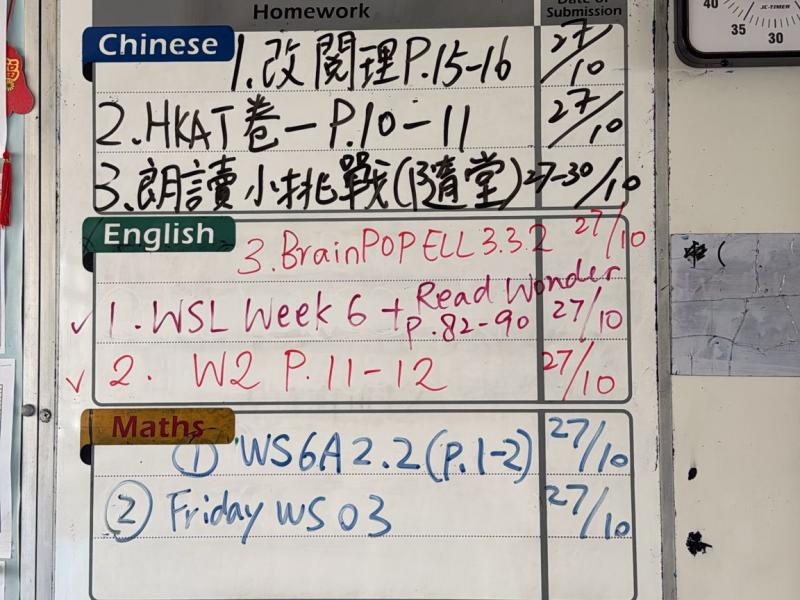 Homework
Date of Submission
Chinese
1.改閱理P.15-16 27/10
2.HKAT卷一P.10-11 27/10
3.朗讀小挑戰(隨堂) 27-30/10
English
3.BrainPOP ELL 3.3.2 27/10
✓ 1. WSL Week 6 + Read Wonder P.82-90 27/10
✓ 2. W2 P.11-12 27/10
Maths
① WS6A2.2(p.1-2) 27/10
② Friday WS 03 27/10
40
35
30
JC-TIMER
福